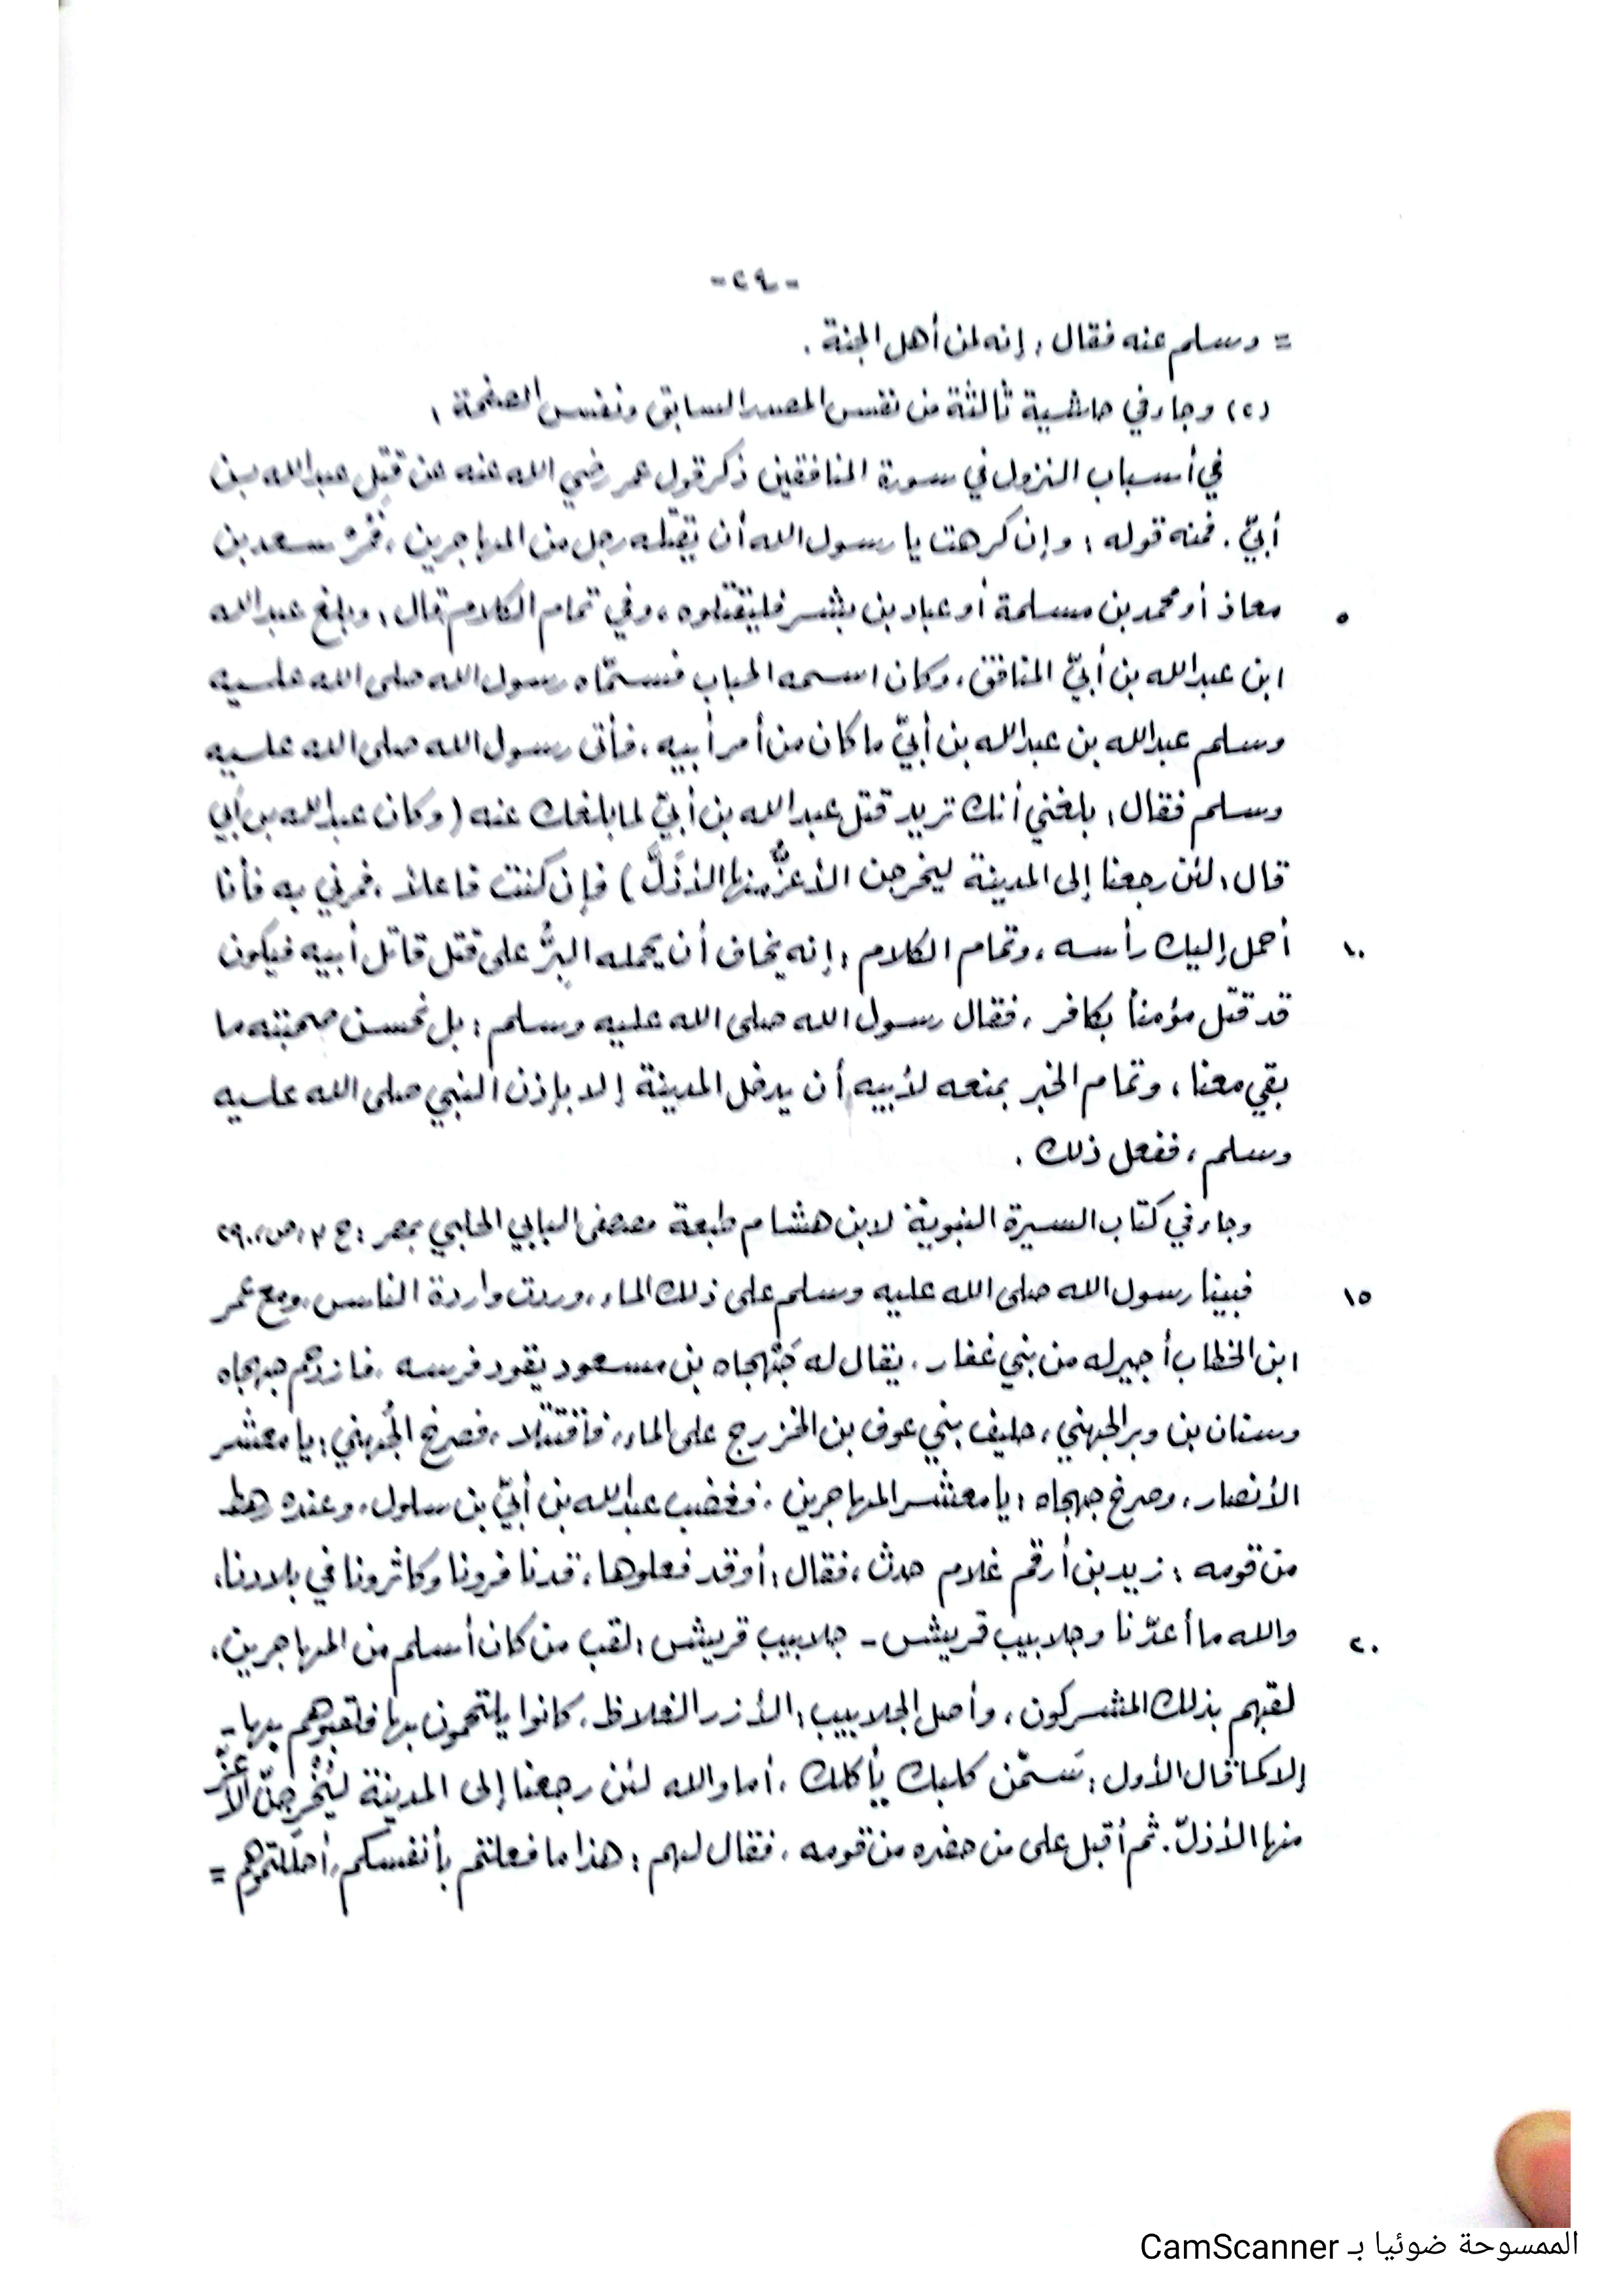 -٢٩-
= وسلم عنه فقال: إنه لمن أهل الجنة.
(٢) وجاء في حاشية ثالثة من نفس المصدر السابق ونفس الصفحة:
في أسباب النزول في سورة المنافقين ذكر قول عمر رضي الله عنه عن قتل عبدالله بن
أبيّ. فمنه قوله: وإن كرهت يا رسول الله أن يقتله رجل من المهاجرين، فمُرْ سعد بن
٥ معاذ أو محمد بن مسلمة أو عباد بن بشر فليقتلوه، وفي تمام الكلام قال: وبلغ عبدالله
ابن عبدالله بن أبيّ المنافق، وكان اسمه الحباب فسمّاه رسول الله صلى الله عليه
وسلم عبدالله بن عبدالله بن أبيّ ما كان من أمر أبيه، فأتى رسول الله صلى الله عليه
وسلم فقال: بلغني أنك تريد قتل عبدالله بن أبيّ لما بلغك عنه (وكان عبدالله بن أبي
قال: لئن رجعنا إلى المدينة ليخرجن الأعزُّ منها الأذَلَّ) فإن كنت فاعلاً، فمرني به فأنا
١٠ أحمل إليك رأسه، وتمام الكلام: إنه يخاف أن يحمله البِرُّ على قتل قاتل أبيه فيكون
قد قتل مؤمناً بكافر، فقال رسول الله صلى الله عليه وسلم: بل نحسن صحبته ما
بقي معنا، وتمام الخبر بمنعه لأبيه أن يدخل المدينة إلا بإذن النبي صلى الله عليه
وسلم، ففعل ذلك.
وجاء في كتاب السيرة النبوية لابن هشام طبعة مصطفى البابي الحلبي بمصر: ج ٣، ص ٢٩٠،
١٥ فبينا رسول الله صلى الله عليه وسلم على ذلك الماء، وردت واردة الناس، ومع عمر
ابن الخطاب أجير له من بني غفار، يقال له جَهْجاه بن مسعود يقود فرسه، فازدحم جهجاه
وسنان بن وبر الجهني، حليف بني عوف بن الخزرج على الماء، فاقتتلا، فصرخ الجُهني: يا معشر
الأنصار، وصرخ جهجاه: يا معشر المهاجرين، فغضب عبدالله بن أبيّ بن سلول، وعنده رهط
من قومه: زيد بن أرقم غلام حدث، فقال: أوقد فعلوها، قد نافرونا وكاثرونا في بلادنا،
٢٠ والله ما أعدّنا وجلابيب قريش - جلابيب قريش: لقب من كان أسلم من المهاجرين،
لقبهم بذلك المشركون، وأصل الجلابيب: الأزر الغلاظ، كانوا يلتحفون بها فلقبوهم بها -
إلا كما قال الأول: سَمّن كلبك يأكلك، أما والله لئن رجعنا إلى المدينة ليُخْرِجَنّ الأعزّ
منها الأذلّ. ثم أقبل على من حضره من قومه، فقال لهم: هذا ما فعلتم بأنفسكم، أحللتموهم =
الممسوحة ضوئيا بـ CamScanner